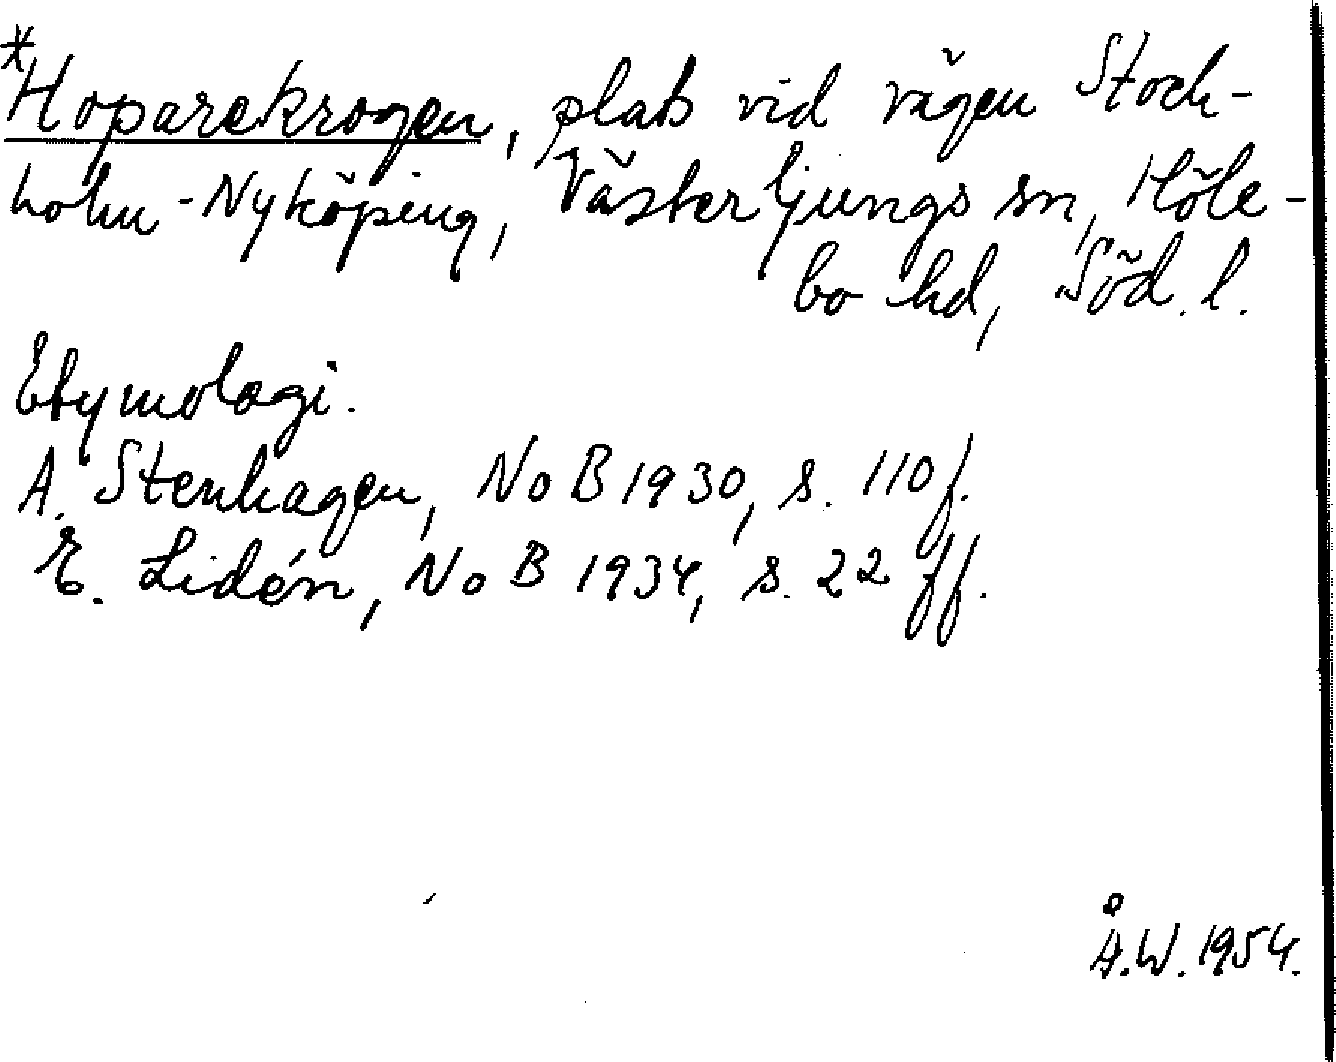 *Hoparekrogen, plats vid vägen Stock-
holm-Nyköping, Västerljungs sn, Höle-
bo hd, Söd. l.
Etymologi.
A. Stenhagen, NoB 1930, s. 110 f.
E. Lidén, NoB 1934, s. 22 ff.
Å.W. 1954.